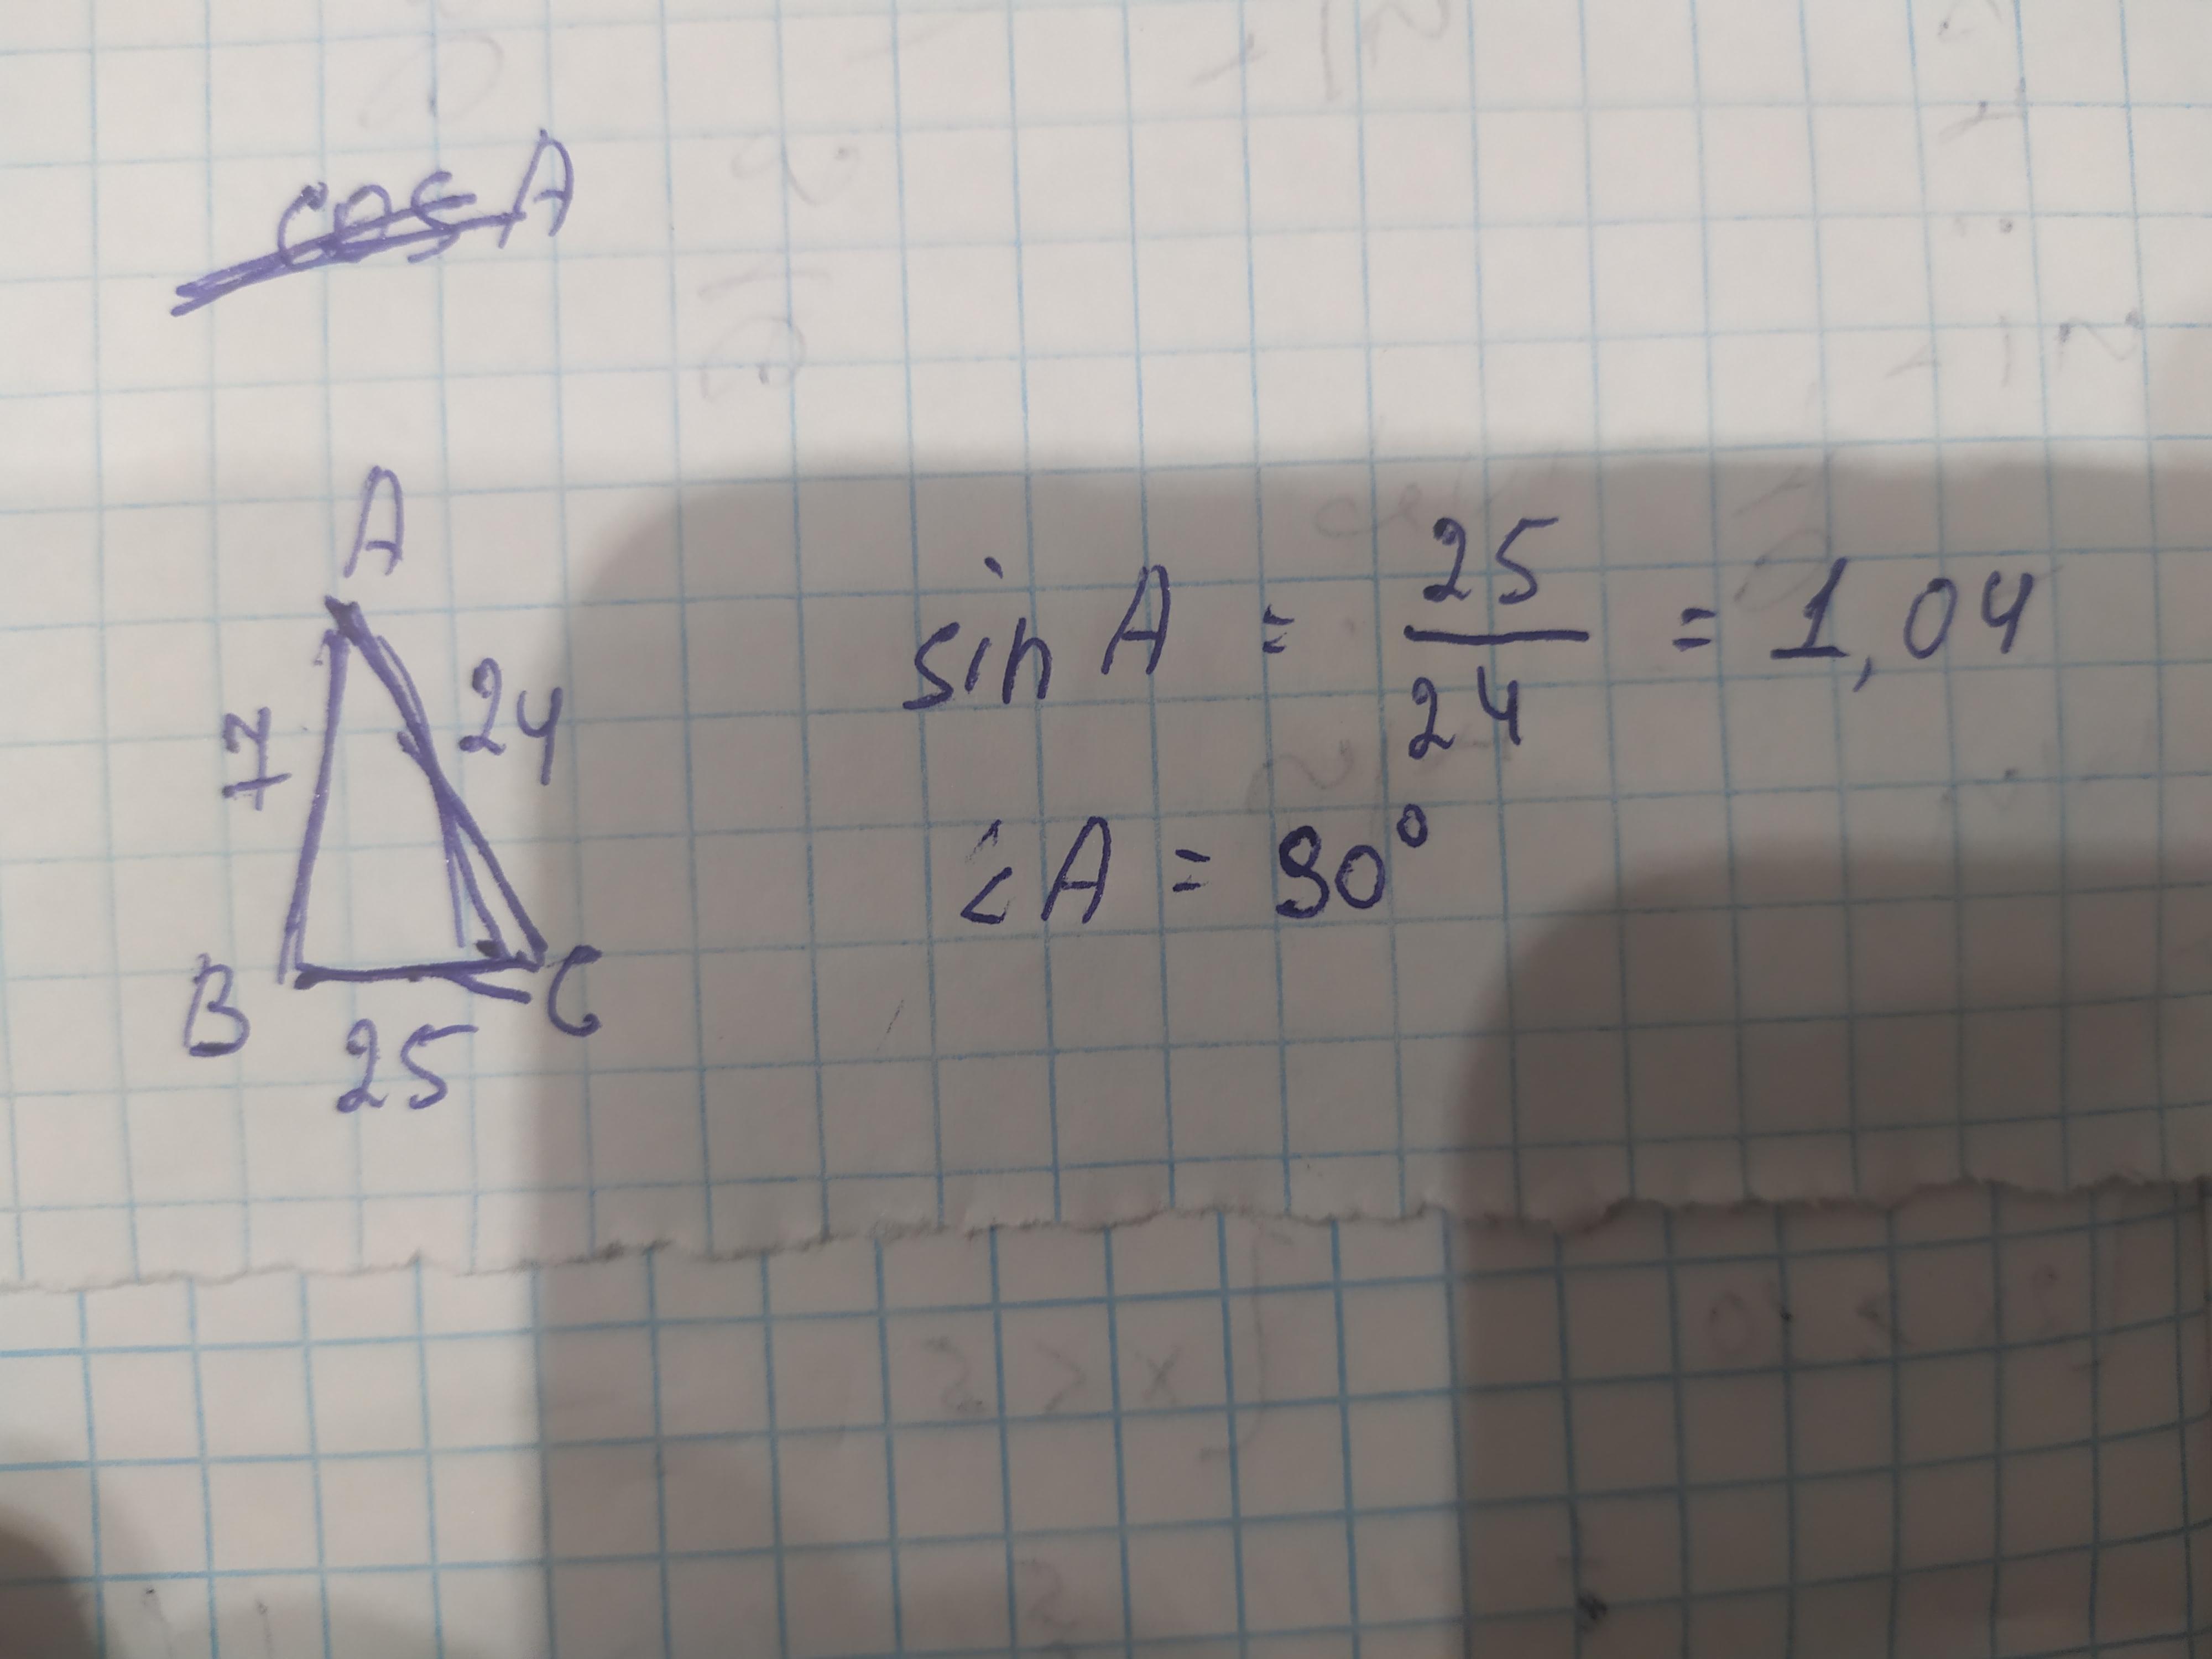 cos A
A
7
24
B
C
25
sin A = 25/24 = 1,04
∠A = 90°